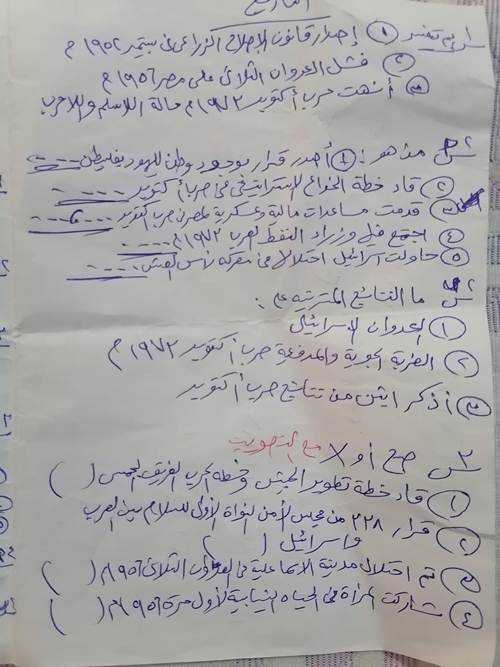 التاريخ
س١ بم تفسر ① إصدار قانون الإصلاح الزراعى فى سبتمبر ١٩٥٢م
② فشل العدوان الثلاثى على مصر ١٩٥٦م
③ أنهت حرب أكتوبر ١٩٧٣م حالة اللاسلم واللاحرب
س٢ من هو: ① أصدر قرار بوجود وطن لليهود بفلسطين -----
② قاد خطة الخداع الاستراتيجى فى حرب أكتوبر -----
③ قدمت مساعدات مالية وعسكرية لمصر فى حرب أكتوبر -----
④ اجتمع فى وزراء النفط العرب ١٩٧٣م -----
⑤ حاولت اسرائيل احتلال فى معركة رأس العش -----
س٣ ما النتائج المترتبة على :
① العدوان الإسرائيلى
② الضربة الجوية والمدفعية حرب أكتوبر ١٩٧٣م
③ أذكر اثنين من نتائج حرب أكتوبر
س صح أو لا مع التصويب
① قاد خطة تطوير الجيش وخطة الحرب الفريق الجمسى ( )
② قرار ٣٣٨ من مجلس الأمن النواة الأولى للسلام بين العرب
واسرائيل ( )
③ تم احتلال مدينة الاسماعيلية فى العدوان الثلاثى ١٩٥٦م ( )
④ شاركت المرأة فى الحياه النيابية لأول مرة ١٩٥٦م ( )